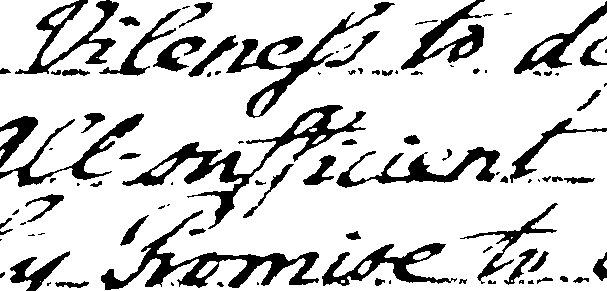 Vileneſs to de
All-sufficient
by Promise to